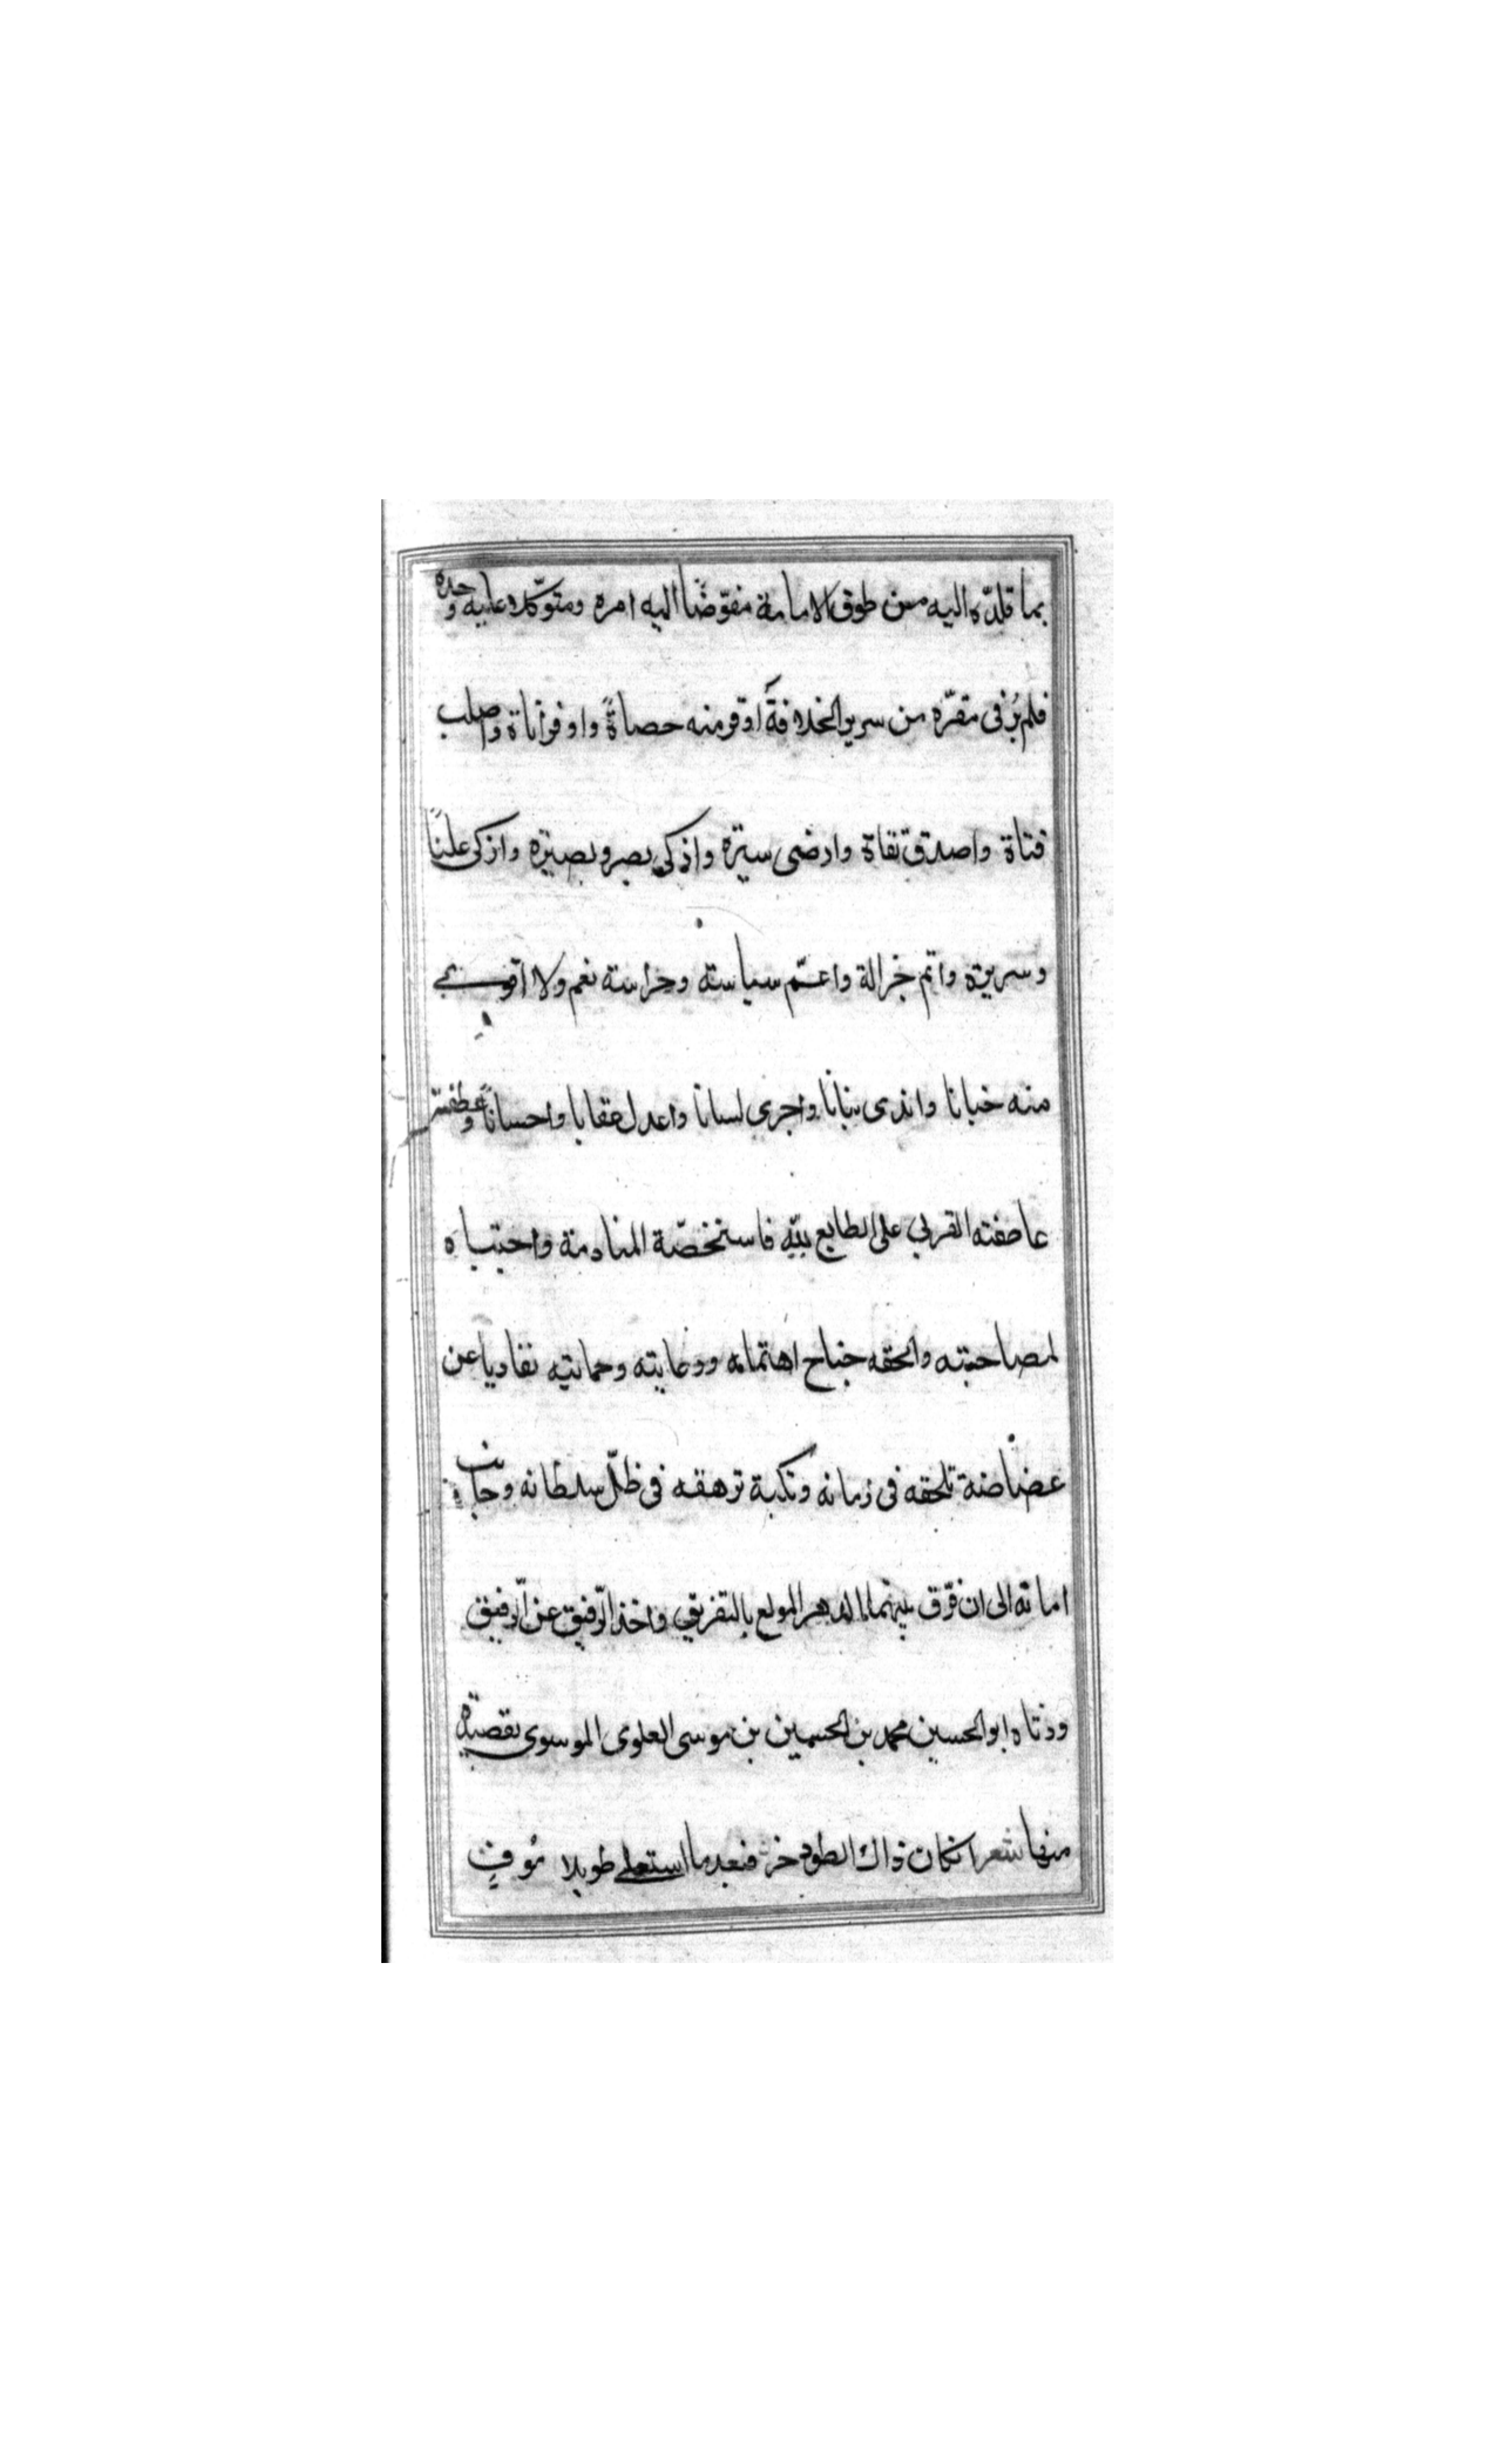 بما قلدّه اليه من طوق الامامة مفوّضًا اليه امره ومتوكّلا عليه وحده
فلم يُر فى مقرّه من سرير الخلافة اوقر منه حصاةً واوفر اناة واصلب
قناة واصدق تقاة وارضى سيرة واذكى بصر وبصيرة وازكى علنًا
وسريرة واتم جزالة واعمّ سياسته وحراسته نعم ولا اقوى
منه جنانا واندى بنانا واجرى لسانا واعدل عقابا واحسانًا وعطفته
عاطفته القربى على الطايع لله فاستخصّه المنادمة واجتباه
لمصاحبته والحقه جناح اهتمامه ورعايته وحمايته تفاديا عن
غضاضة تلحقه فى زمانه ونكبة ترهقه فى ظلّ سلطانه وجانب
امانه الى ان فرّق بينهما الدهر المولع بالتفريق واخذ الرّفيق عن الرّفيق
ورثاه ابو الحسين محمد بن الحسين بن موسى العلوى الموسوى بقصيدة
منها شعر ان كان ذاك الطود خرّ فبعد ما استعلى طويلا مُوفٍ